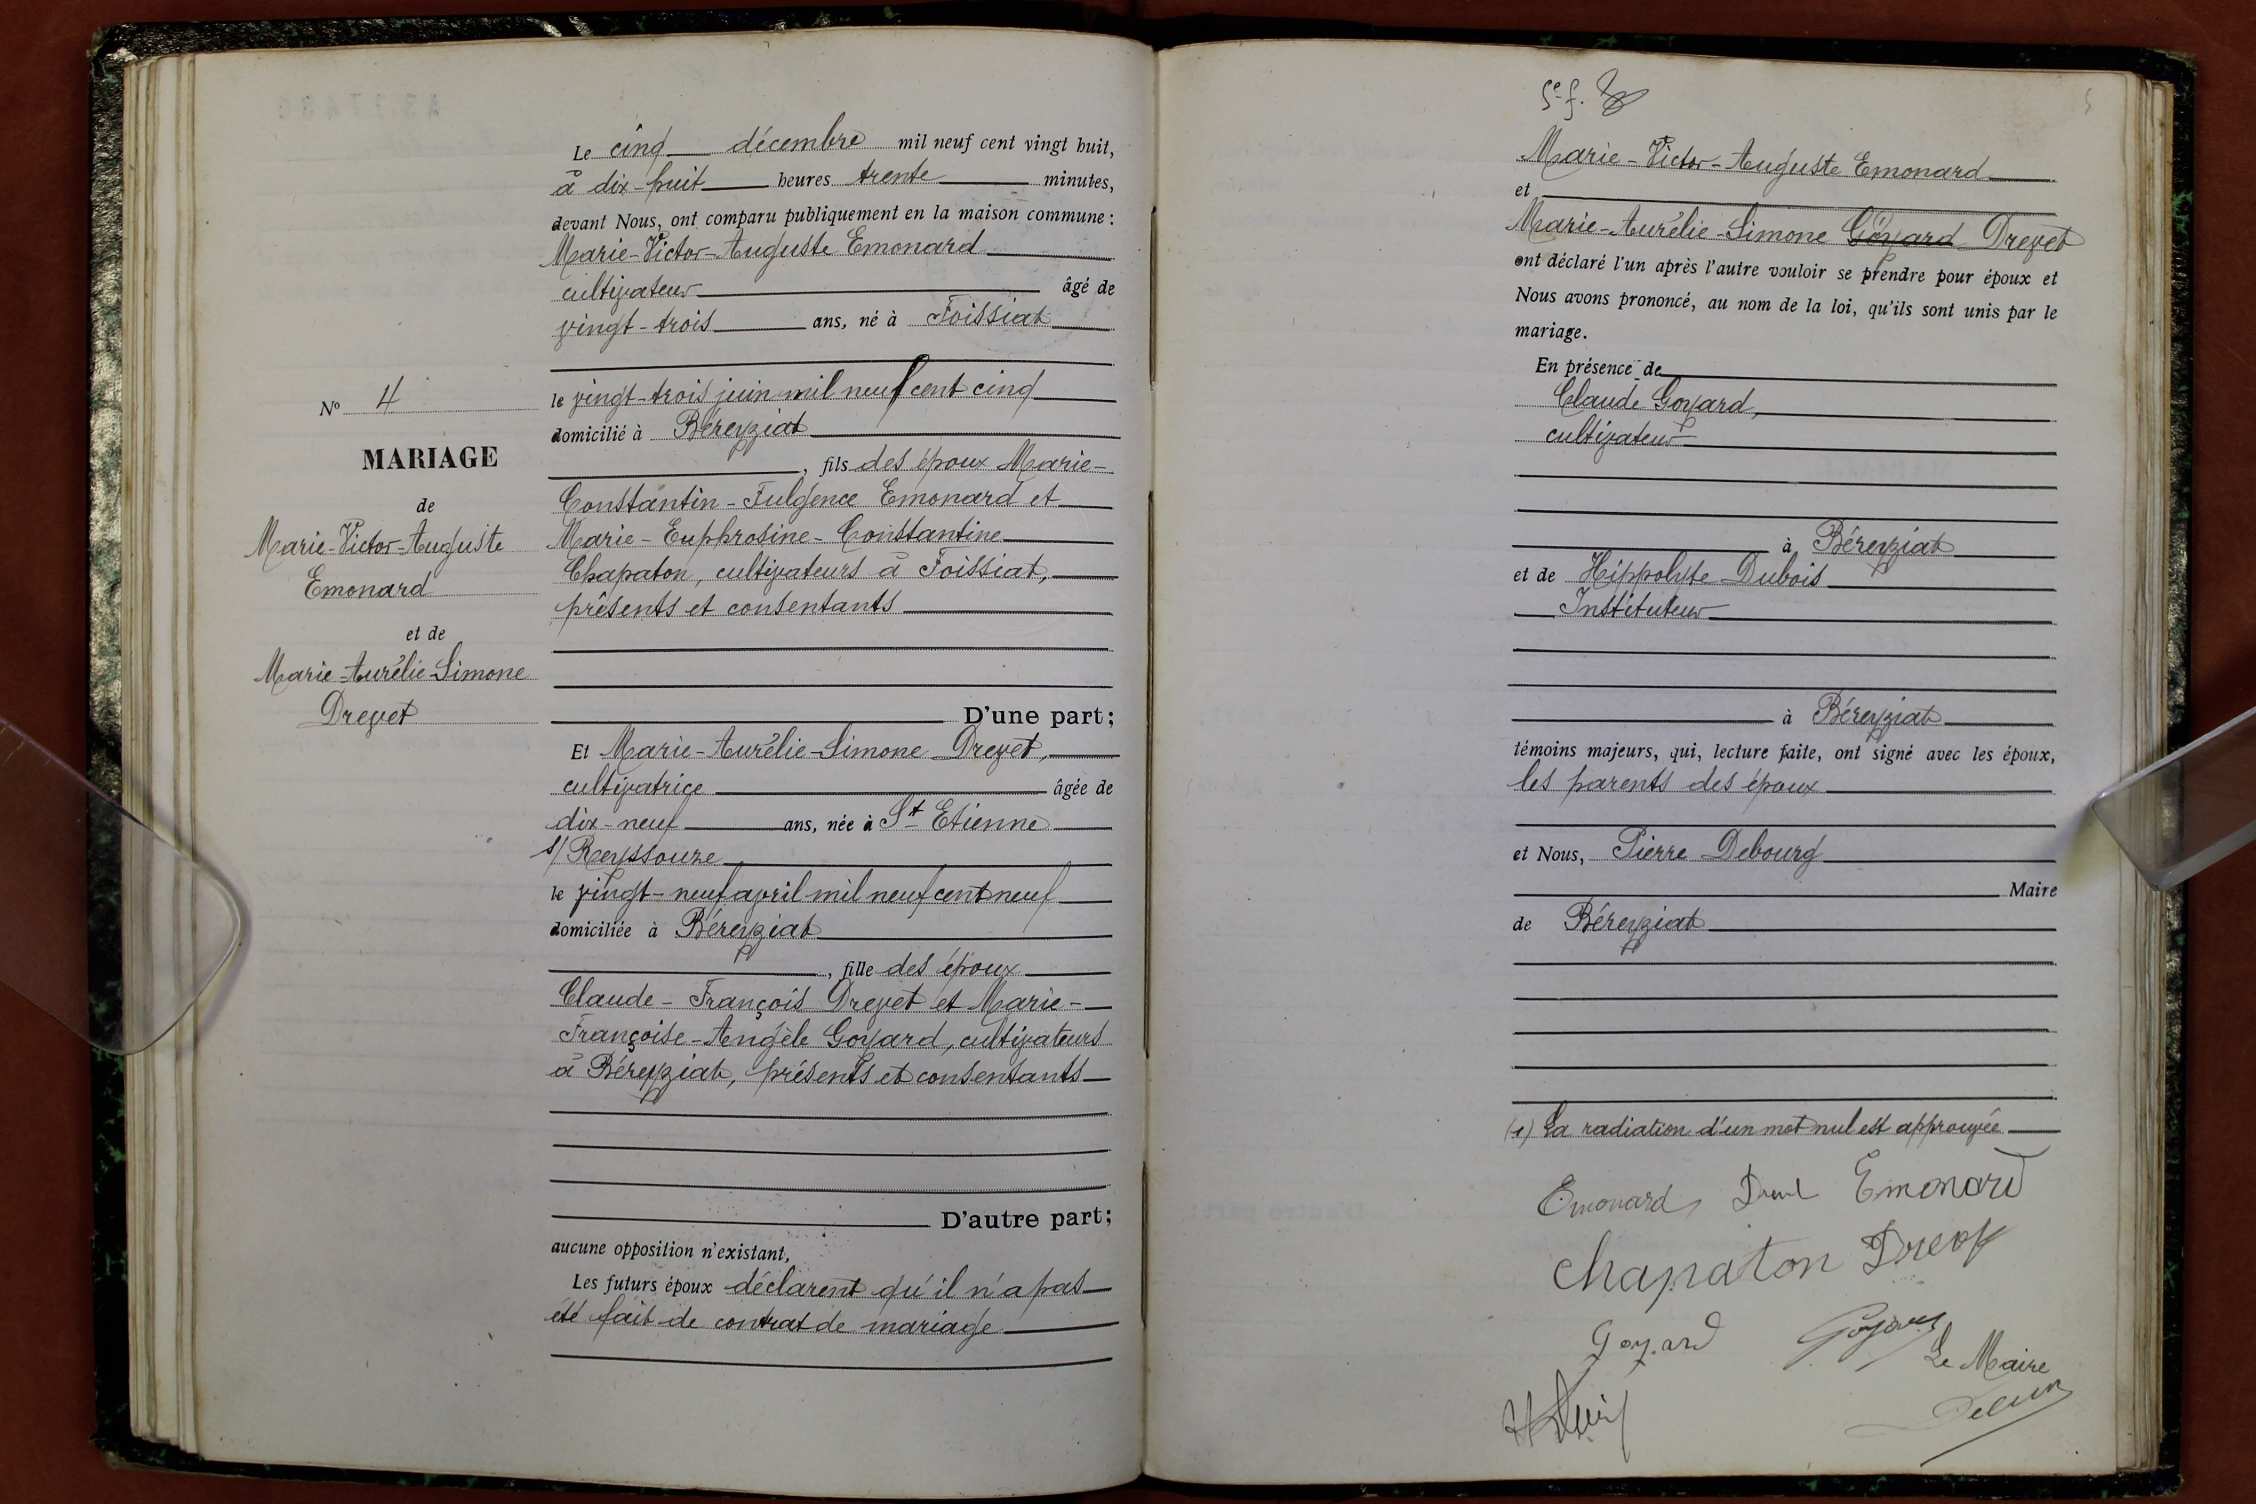 Le cinq décembre mil neuf cent vingt huit,
à dix-huit heures trente minutes,
devant Nous, ont comparu publiquement en la maison commune :
Marie-Victor-Auguste Emonard
cultivateur âgé de
vingt-trois ans, né à Foissiat
le vingt-trois juin mil neuf cent cinq
domicilié à Béreyziat
, fils des époux Marie-
Constantin-Fulgence Emonard et
Marie-Euphrosine-Constantine
Chapaton, cultivateurs à Foissiat,
présents et consentants
D'une part ;
Et Marie-Aurélie-Simone Drevet,
cultivatrice âgée de
dix-neuf ans, née à St Etienne
s/ Reyssouze
le vingt-neuf avril mil neuf cent neuf
domiciliée à Béreyziat
, fille des époux
Claude-François Drevet et Marie-
Françoise-Angèle Goyard, cultivateurs
à Béreyziat, présents et consentants
D'autre part ;
aucune opposition n'existant,
Les futurs époux déclarent qu'il n'a pas
été fait de contrat de mariage
N° 4
MARIAGE
de
Marie-Victor-Auguste
Emonard
et de
Marie-Aurélie-Simone
Drevet
5e f.
Marie-Victor-Auguste Emonard
et
Marie-Aurélie-Simone Goyard (1) Drevet
ont déclaré l'un après l'autre vouloir se prendre pour époux et
Nous avons prononcé, au nom de la loi, qu'ils sont unis par le
mariage.
En présence de
Claude Goyard,
cultivateur
à Béreyziat
et de Hippolyte Dubois
Instituteur
à Béreyziat
témoins majeurs, qui, lecture faite, ont signé avec les époux,
les parents des époux
et Nous, Pierre Debourg
Maire
de Béreyziat
(1) La radiation d'un mot nul est approuvée
Emonard Drevet Emonard
Chapaton Drevet
Goyard Goyard
Le Maire